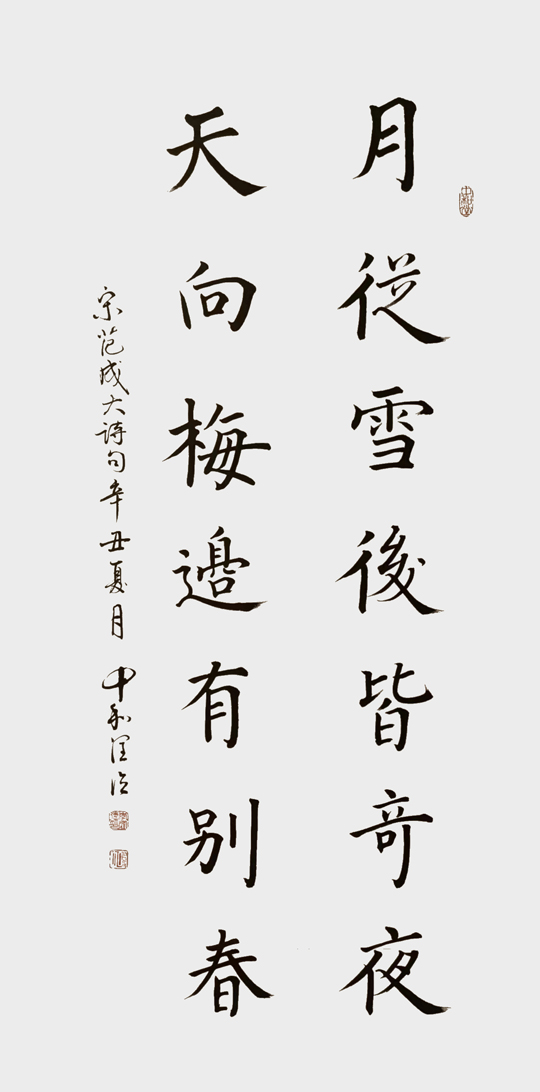 月從雪後皆奇夜
天向梅邊有別春
宋范成大詩句辛丑夏月 中和